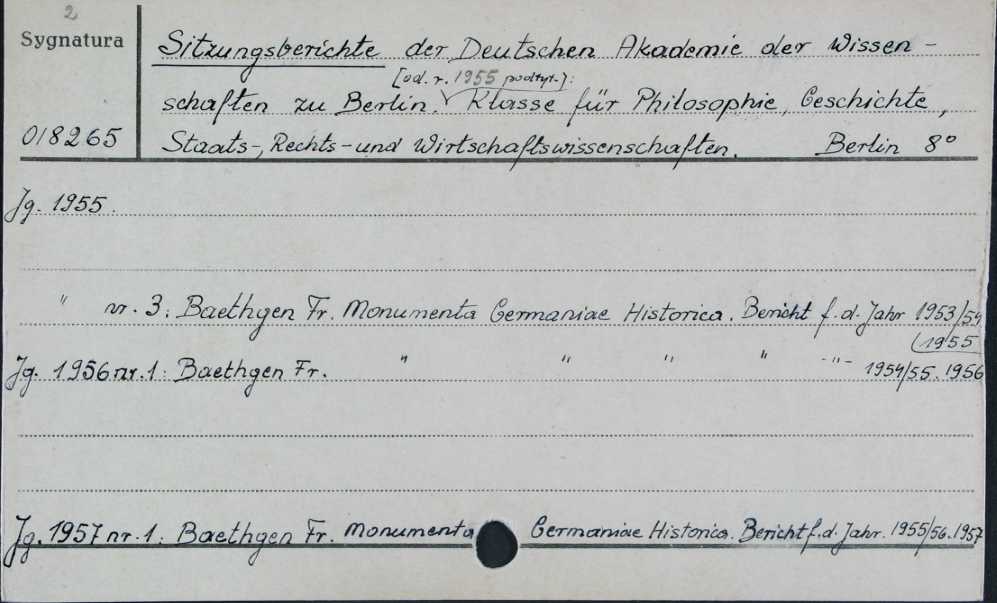 2
Sygnatura
018265
Sitzungsberichte der Deutschen Akademie der Wissen-
[od. r. 1955 podtyt.]:
schaften zu Berlin. Klasse für Philosophie, Geschichte,
Staats-, Rechts- und Wirtschaftswissenschaften. Berlin 8°
Jg. 1955.
" nr. 3: Baethgen Fr. Monumenta Germaniae Historica. Bericht f. d. Jahr 1953/54
(1955
Jg. 1956 nr. 1: Baethgen Fr. " " " " -"- 1954/55. 1956
Jg. 1957 nr. 1: Baethgen Fr. Monumenta Germaniae Historica. Bericht f. d. Jahr. 1955/56. 1957